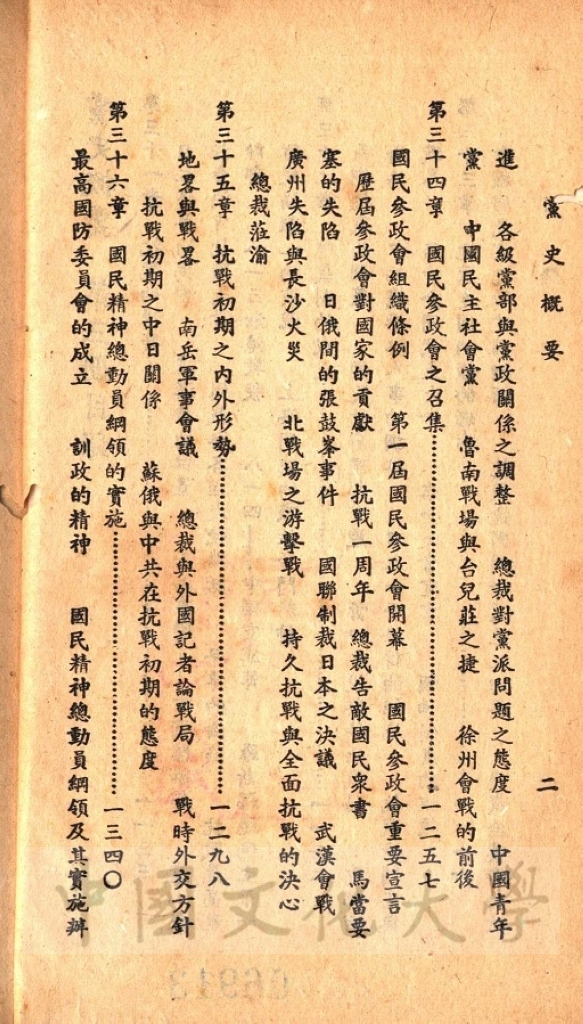 黨史概要
二
進　各級黨部與黨政關係之調整　總裁對黨派問題之態度　中國青年
黨　中國民主社會黨　魯南戰場與台兒莊之捷　徐州會戰的前後
第三十四章　國民參政會之召集…………………………………一二五七
國民參政會組織條例　第一屆國民參政會開幕　國民參政會重要宣言
歷屆參政會對國家的貢獻　抗戰一周年　總裁告敵國民衆書　馬當要
塞的失陷　日俄間的張鼓峯事件　國聯制裁日本之決議　武漢會戰
廣州失陷與長沙火災　北戰場之游擊戰　持久抗戰與全面抗戰的決心
總裁蒞渝
第三十五章　抗戰初期之內外形勢…………………………………一二九八
地畧與戰畧　南岳軍事會議　總裁與外國記者論戰局　戰時外交方針
抗戰初期之中日關係　蘇俄與中共在抗戰初期的態度
第三十六章　國民精神總動員綱領的實施…………………………一三四〇
最高國防委員會的成立　訓政的精神　國民精神總動員綱領及其實施辦
中國文化大學